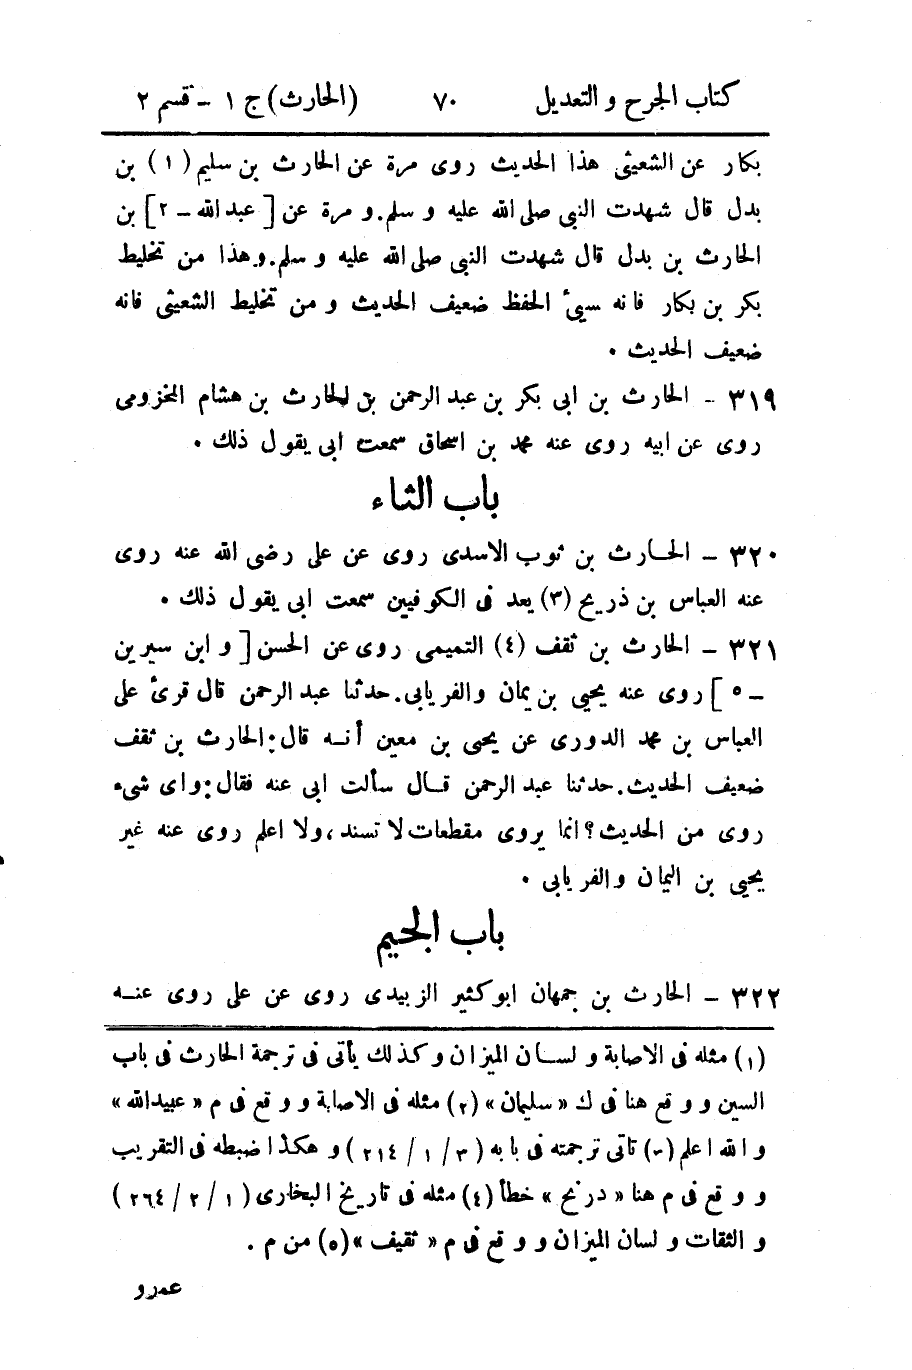 كتاب الجرح و التعديل ٧٠ (الحارث) ج ١ – قسم ٢
بكار عن الشعيثى هذا الحديث روى مرة عن الحارث بن سليم (١) بن
بدل قال شهدت النبى صلى الله عليه و سلم. و مرة عن [ عبد الله – ٢ ] بن
الحارث بن بدل قال شهدت النبى صلى الله عليه و سلم. و هذا من تخليط
بكر بن بكار فانه سيئ الحفظ ضعيف الحديث و من تخليط الشعيثى فانه
ضعيف الحديث .
٣١٩ – الحارث بن ابى بكر بن عبد الرحمن بن الحارث بن هشام المخزومى
روى عن ابيه روى عنه محمد بن اسحاق سمعت ابى يقول ذلك .
باب الثاء
٣٢٠ – الحارث بن ثوب الاسدى روى عن على رضى الله عنه روى
عنه العباس بن ذريح (٣) يعد فى الكوفيين سمعت ابى يقول ذلك .
٣٢١ – الحارث بن ثقف (٤) التميمى روى عن الحسن [ و ابن سيرين
– ٥ ] روى عنه يحيى بن يمان والفريابى. حدثنا عبد الرحمن قال قرئ على
العباس بن محمد الدورى عن يحيى بن معين أنه قال: الحارث بن ثقف
ضعيف الحديث. حدثنا عبد الرحمن قال سألت ابى عنه فقال: واى شىء
روى من الحديث؟ انما يروى مقطعات لا تسند، ولا اعلم روى عنه غير
يحيى بن اليمان والفريابى .
باب الجيم
٣٢٢ – الحارث بن جمهان ابو كثير الزبيدى روى عن على روى عنه
(١) مثله فى الاصابة و لسان الميزان و كذلك يأتى فى ترجمة الحارث فى باب
السين و وقع هنا فى ك « سليمان » (٢) مثله فى الاصابة و وقع فى م « عبيدالله »
و الله اعلم (٣) تاتى ترجمته فى بابه ( ٣ / ١ / ٢١٤ ) و هكذا ضبطه فى التقريب
و وقع فى م هنا « درنج » خطأ (٤) مثله فى تاريخ البخارى ( ١ / ٢ / ٢٦٤ )
و الثقات و لسان الميزان و وقع فى م « ثقيف » (٥) من م .
عمرو